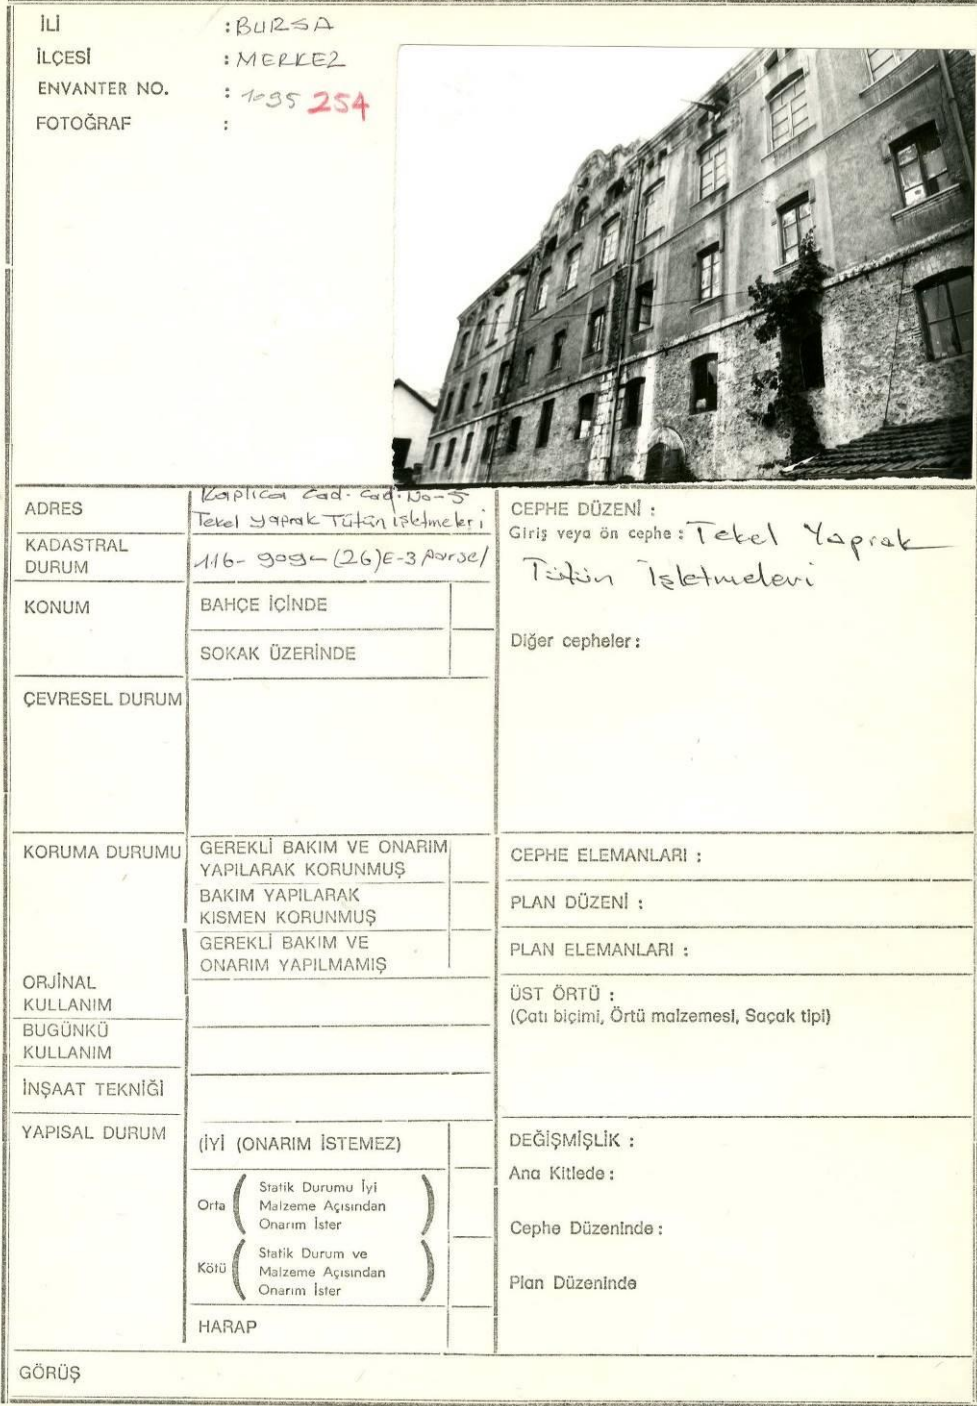 İLİ : BURSA
İLÇESİ : MERKEZ
ENVANTER NO. : 1-95 254
FOTOĞRAF :
ADRES Kaplıca Cad. Cad. No-5
Tekel Yaprak Tütün işletmeleri
KADASTRAL
DURUM
116- 909- (26)E-3 parsel
KONUM
BAHÇE İÇİNDE
SOKAK ÜZERİNDE
ÇEVRESEL DURUM
KORUMA DURUMU
GEREKLİ BAKIM VE ONARIM
YAPILARAK KORUNMUŞ
BAKIM YAPILARAK
KISMEN KORUNMUŞ
GEREKLİ BAKIM VE
ONARIM YAPILMAMIŞ
ORJİNAL
KULLANIM
BUGÜNKÜ
KULLANIM
İNŞAAT TEKNİĞİ
YAPISAL DURUM
(İYİ (ONARIM İSTEMEZ)
Orta
Statik Durumu İyi
Malzeme Açısından
Onarım İster
Kötü
Statik Durum ve
Malzeme Açısından
Onarım İster
HARAP
CEPHE DÜZENİ :
Giriş veya ön cephe : Tekel Yaprak
Tütün İşletmeleri
Diğer cepheler :
CEPHE ELEMANLARI :
PLAN DÜZENİ :
PLAN ELEMANLARI :
ÜST ÖRTÜ :
(Çatı biçimi, Örtü malzemesi, Saçak tipi)
DEĞİŞMİŞLİK :
Ana Kitlede :
Cephe Düzeninde :
Plan Düzeninde
GÖRÜŞ